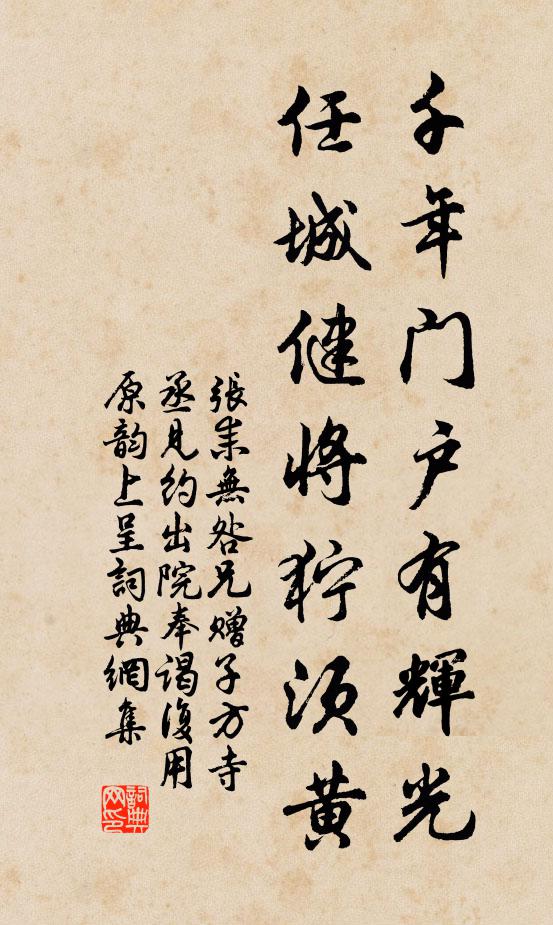 千年门户有輝光
任城健將狞须黄
張耒無咎兄赠子方寺
丞見約出院奉谒復用
原韵上呈詞典網集
詞典网印